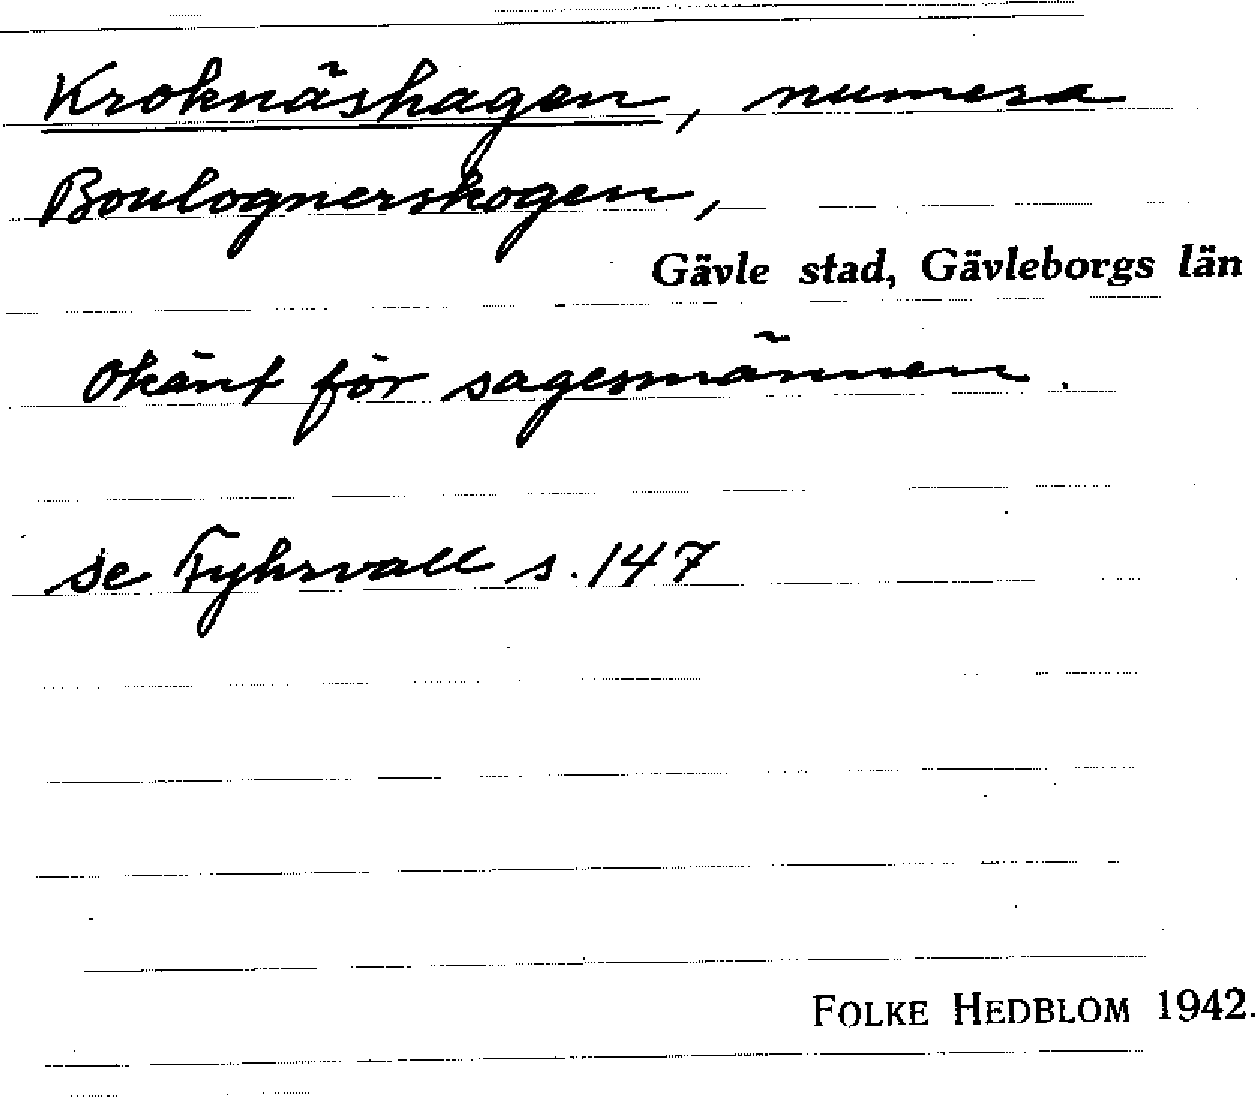 Kroknäshagen, numera
Boulognerskogen,
Gävle stad, Gävleborgs län
Okänt för sagesmännen.
se Fyhrvall s. 147
FOLKE HEDBLOM 1942.